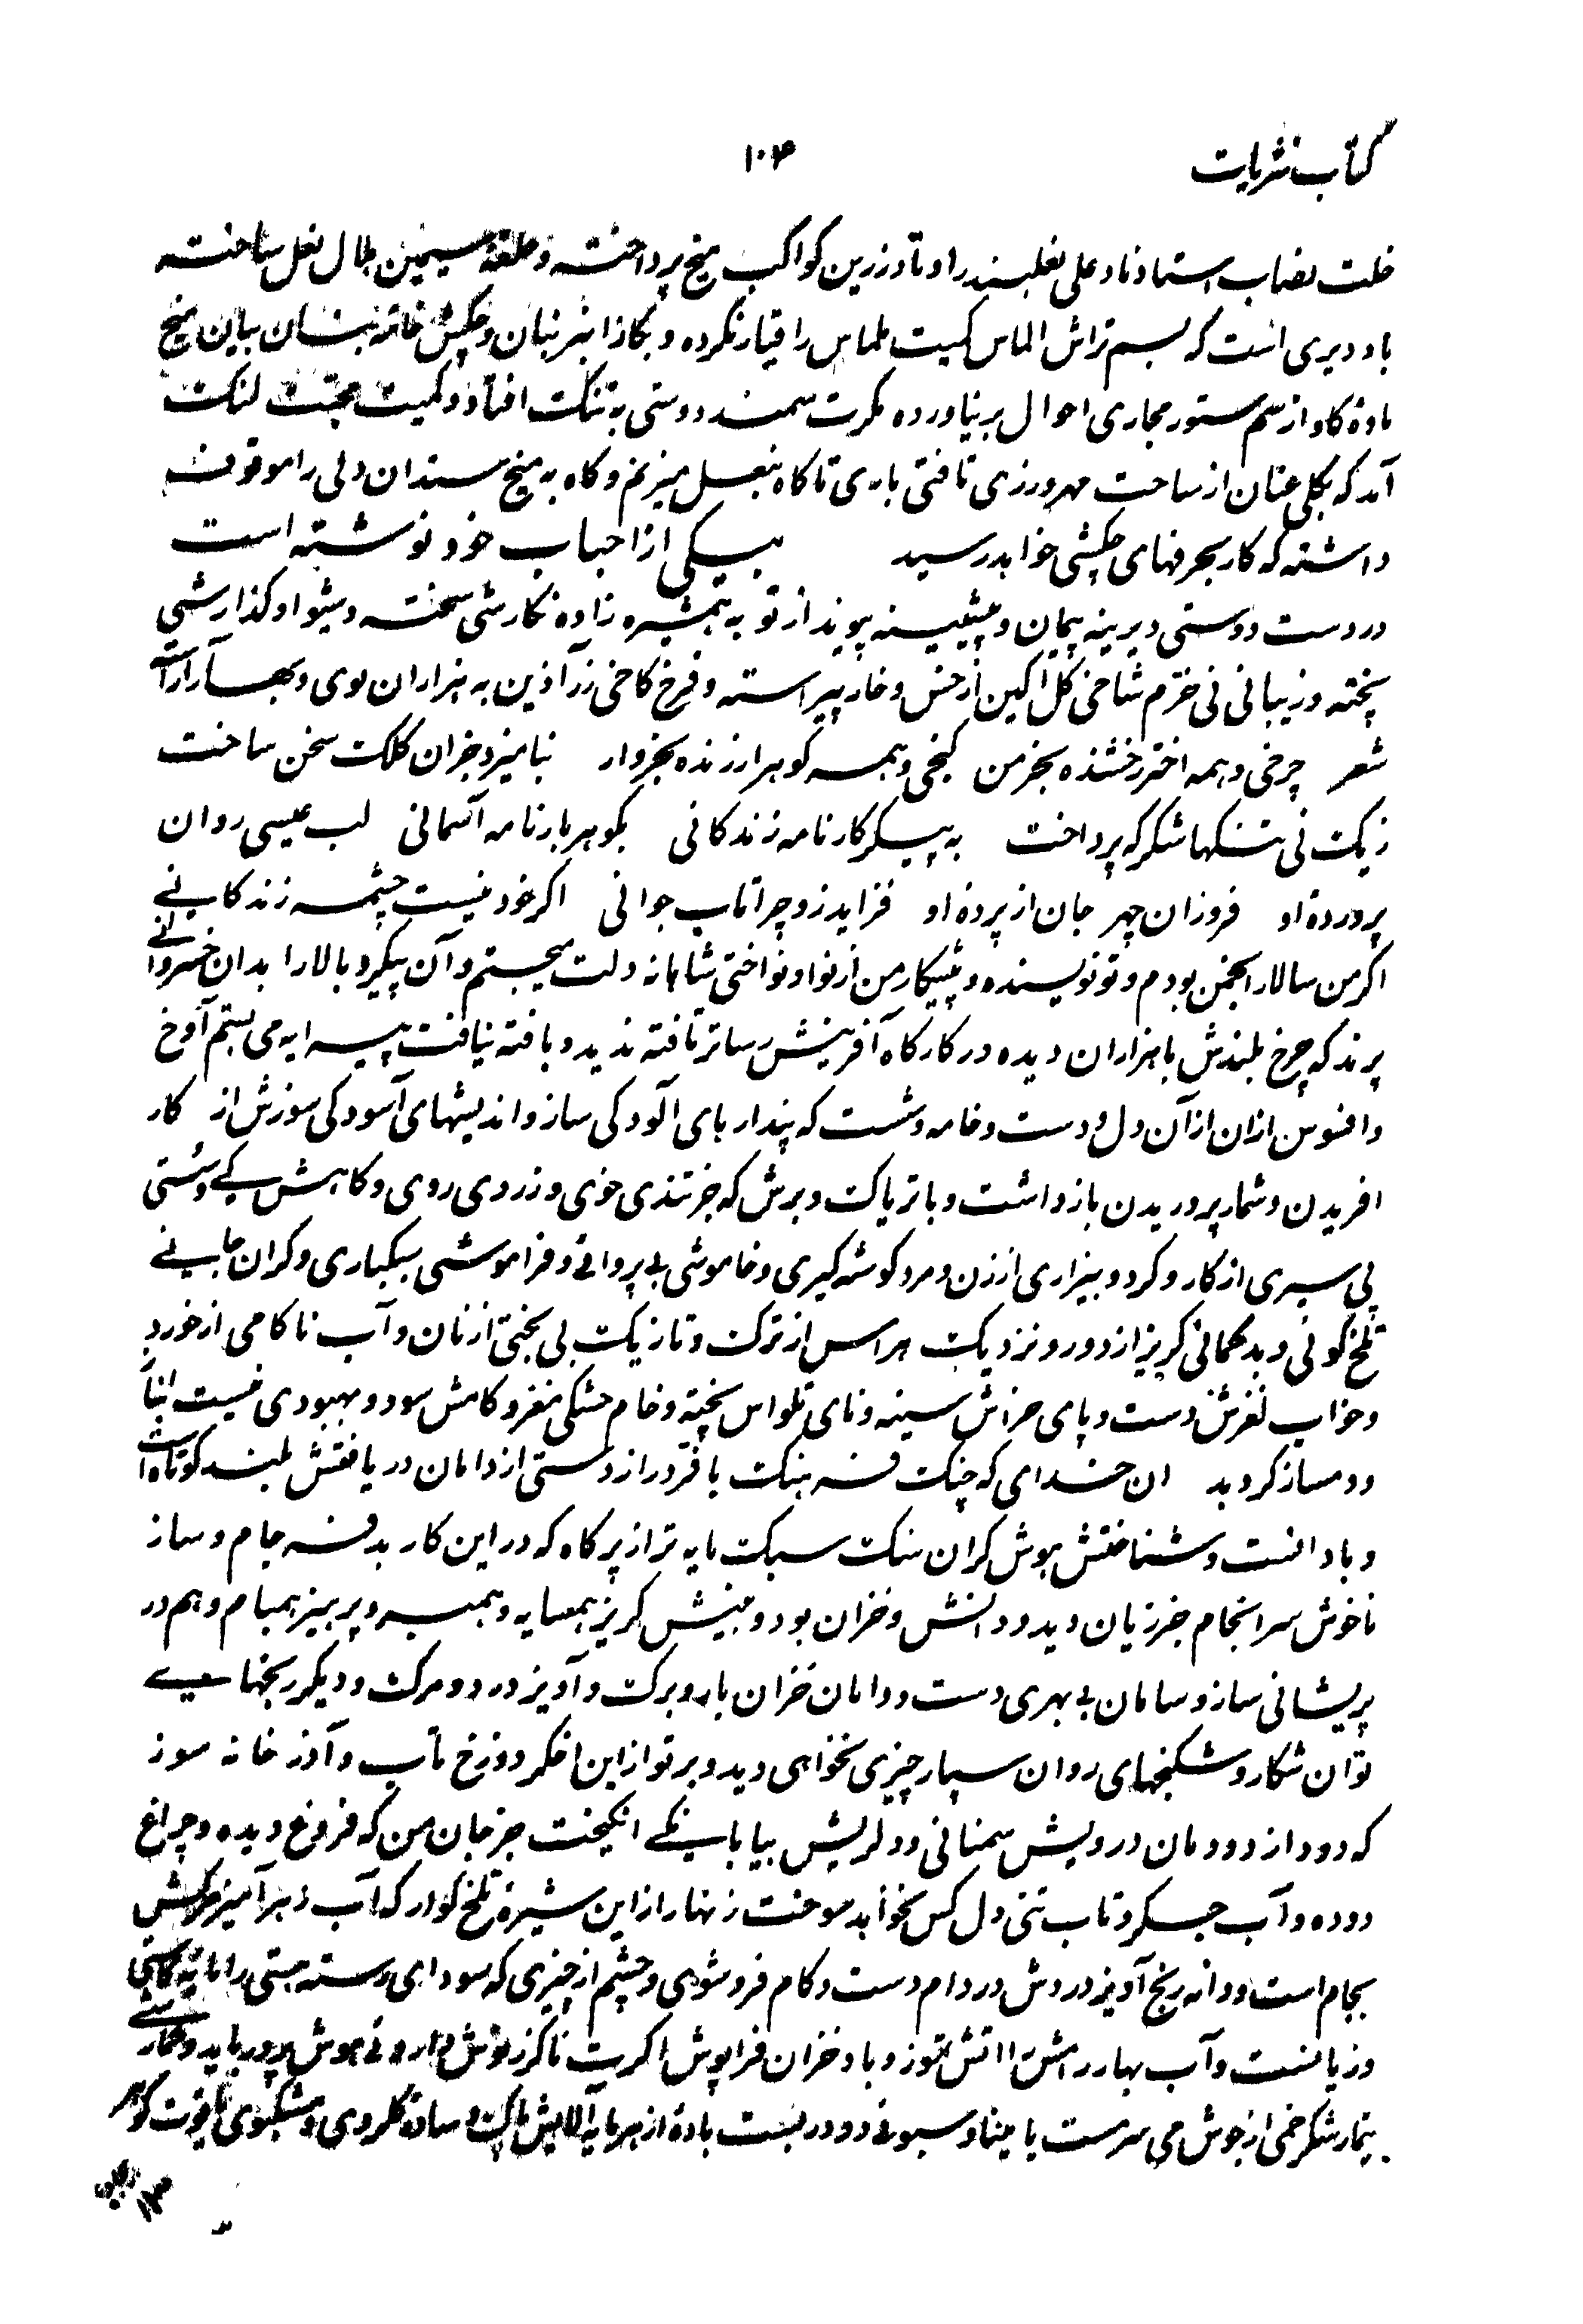 کتاب نثریات
۱۰۴
خلت نصاب استاد نادعلی نعلبند را اوتاد زرین کواکب میخ پرداخته و حلقه سیمین هلال نعل ساخته
باد دیری است که بسم تراش الماس کمیت الماس را قیار نکرده و بکاز انبر زبان و چکش خامه بنسان بیان میخ
ماده کاو از سم ستور مجاری احوال بر نیاورده مکرت سمند دوستی به تنکت افتاد و کمیت محبت لنکت
آمد که بکلی عنان از ساحت مهرورزی تافتی باری تا کاه بنعل میزنم و کاه به میخ سندان دلی را موقوف
داشته که کار بحرفهای چکشی خواهد رسید بیکی از احباب خود نوشته است
در دست دوستی دیرینه پیمان و پیشینه پیوند از تو به همشیره زاده نکارشی سخته و شیوا و کذارشی
پخته و زیبا نی نی خرم شاخی کل اکین از خس و خار پیراسته و فرخ کاخی زر آذین به هزاران بوی و بهار آراسته
شعر چرخی و همه اختر رخشنده بخرمن کنجی و همه کوهر ارزنده بخروار نیامیزد خزان کلکت سخن ساخت
زیکت نی تنکها شکر که پرداخت به پیکر کارنامه زندکانی بکوهر بارنامه آسمانی لب عیسی روان
پرورده او فروزان چهر جان از پرده او فزاید زو چرا تاب جوانی اکر خود نیست چشمه زندکانی
اکر من سالار انجمن بودم و تو نویسنده و پیشکار من از نو او نواختی شاهانه دلت میجستم و آن پیکر و بالا را بدان خسروانی
پرند که چرخ بلندش با هزاران دیده در کارکاه آفرینش رساتر تافته ندید و بافته نیافت پیرایه می بستم آوخ
و افسوس ازان ازآن دل و دست و خامه و شست که پندار بای آلودکی ساز و اندیشهای آسودکی سوزش از کار
افریدن و شمار پروریدن باز داشت و با تریاکت و برش که جز تندی خوی و زردی روی و کاهش کی و سستی
پی سیری از کار و کرد و بیزاری از زن و مرد کوشه کیری و خاموشی بی پروائی و فراموشی سبکباری و کران جانی
تلخ کوئی و بدکمانی کریز از دور و نزدیکت هراس از ترکت و تازیکت بی بختی از نان و آب ناکامی از خورد
و خواب لغزش دست و پای خراش سینه و نای تلواس پخته و خام خشکی مغز و کامش سود و بهبودی نیست انباز
و دمساز کرد بد ان خدای که چنکت فره هنکت با فر دراز دستی از دامان دریافتش بلند کوتاه است
و با دانست و شناختش هوش کران سنکت سبکت مایه تر از پر کاه که در این کار بدفره جام و ساز
ناخوش سرانجام جز زیان دید و دانش و خزان بود و بینش کریز همسایه و همسر و پرهیز همبام و هم در
پریشانی ساز و سامان بی بهری دست و دامان خزان بار و برکت و آویز درد و مرکت و دیکر رنجهای
توان شکار و شکنجهای روان سپار چیزی نخواهی دید و بر تو از این اخکر دوزخ تاب و آذر خانه سوز
که دود از دودمان درویش سمنانی و دلریش بیابانکی انکیخت جز جان من که فروغ دیده و چراغ
دوده و آب جکر و تاب تنی دل کس نخواهد سوخت زنهار از این شیره تلخ کوار که آب زهر آمیز مرکش
بجام است و دانه رنج آویز دروش در دام دست و کام فروشوی و چشم از چیزی که سودای دسته هستی را مایه کاستی
و زیانست و آب بهار رامش را اتش تموز و باد خزان فراپوش اکرت ناکزر نوش داروئی هوش پرور باید و غمکار
تیمار شکر خمی از جوش می سرمست یا مینا و سبوئی دو دربست باده از هر مایه آلایش پاک و ساده کلروی و مشکبوی یاقوت کوهر